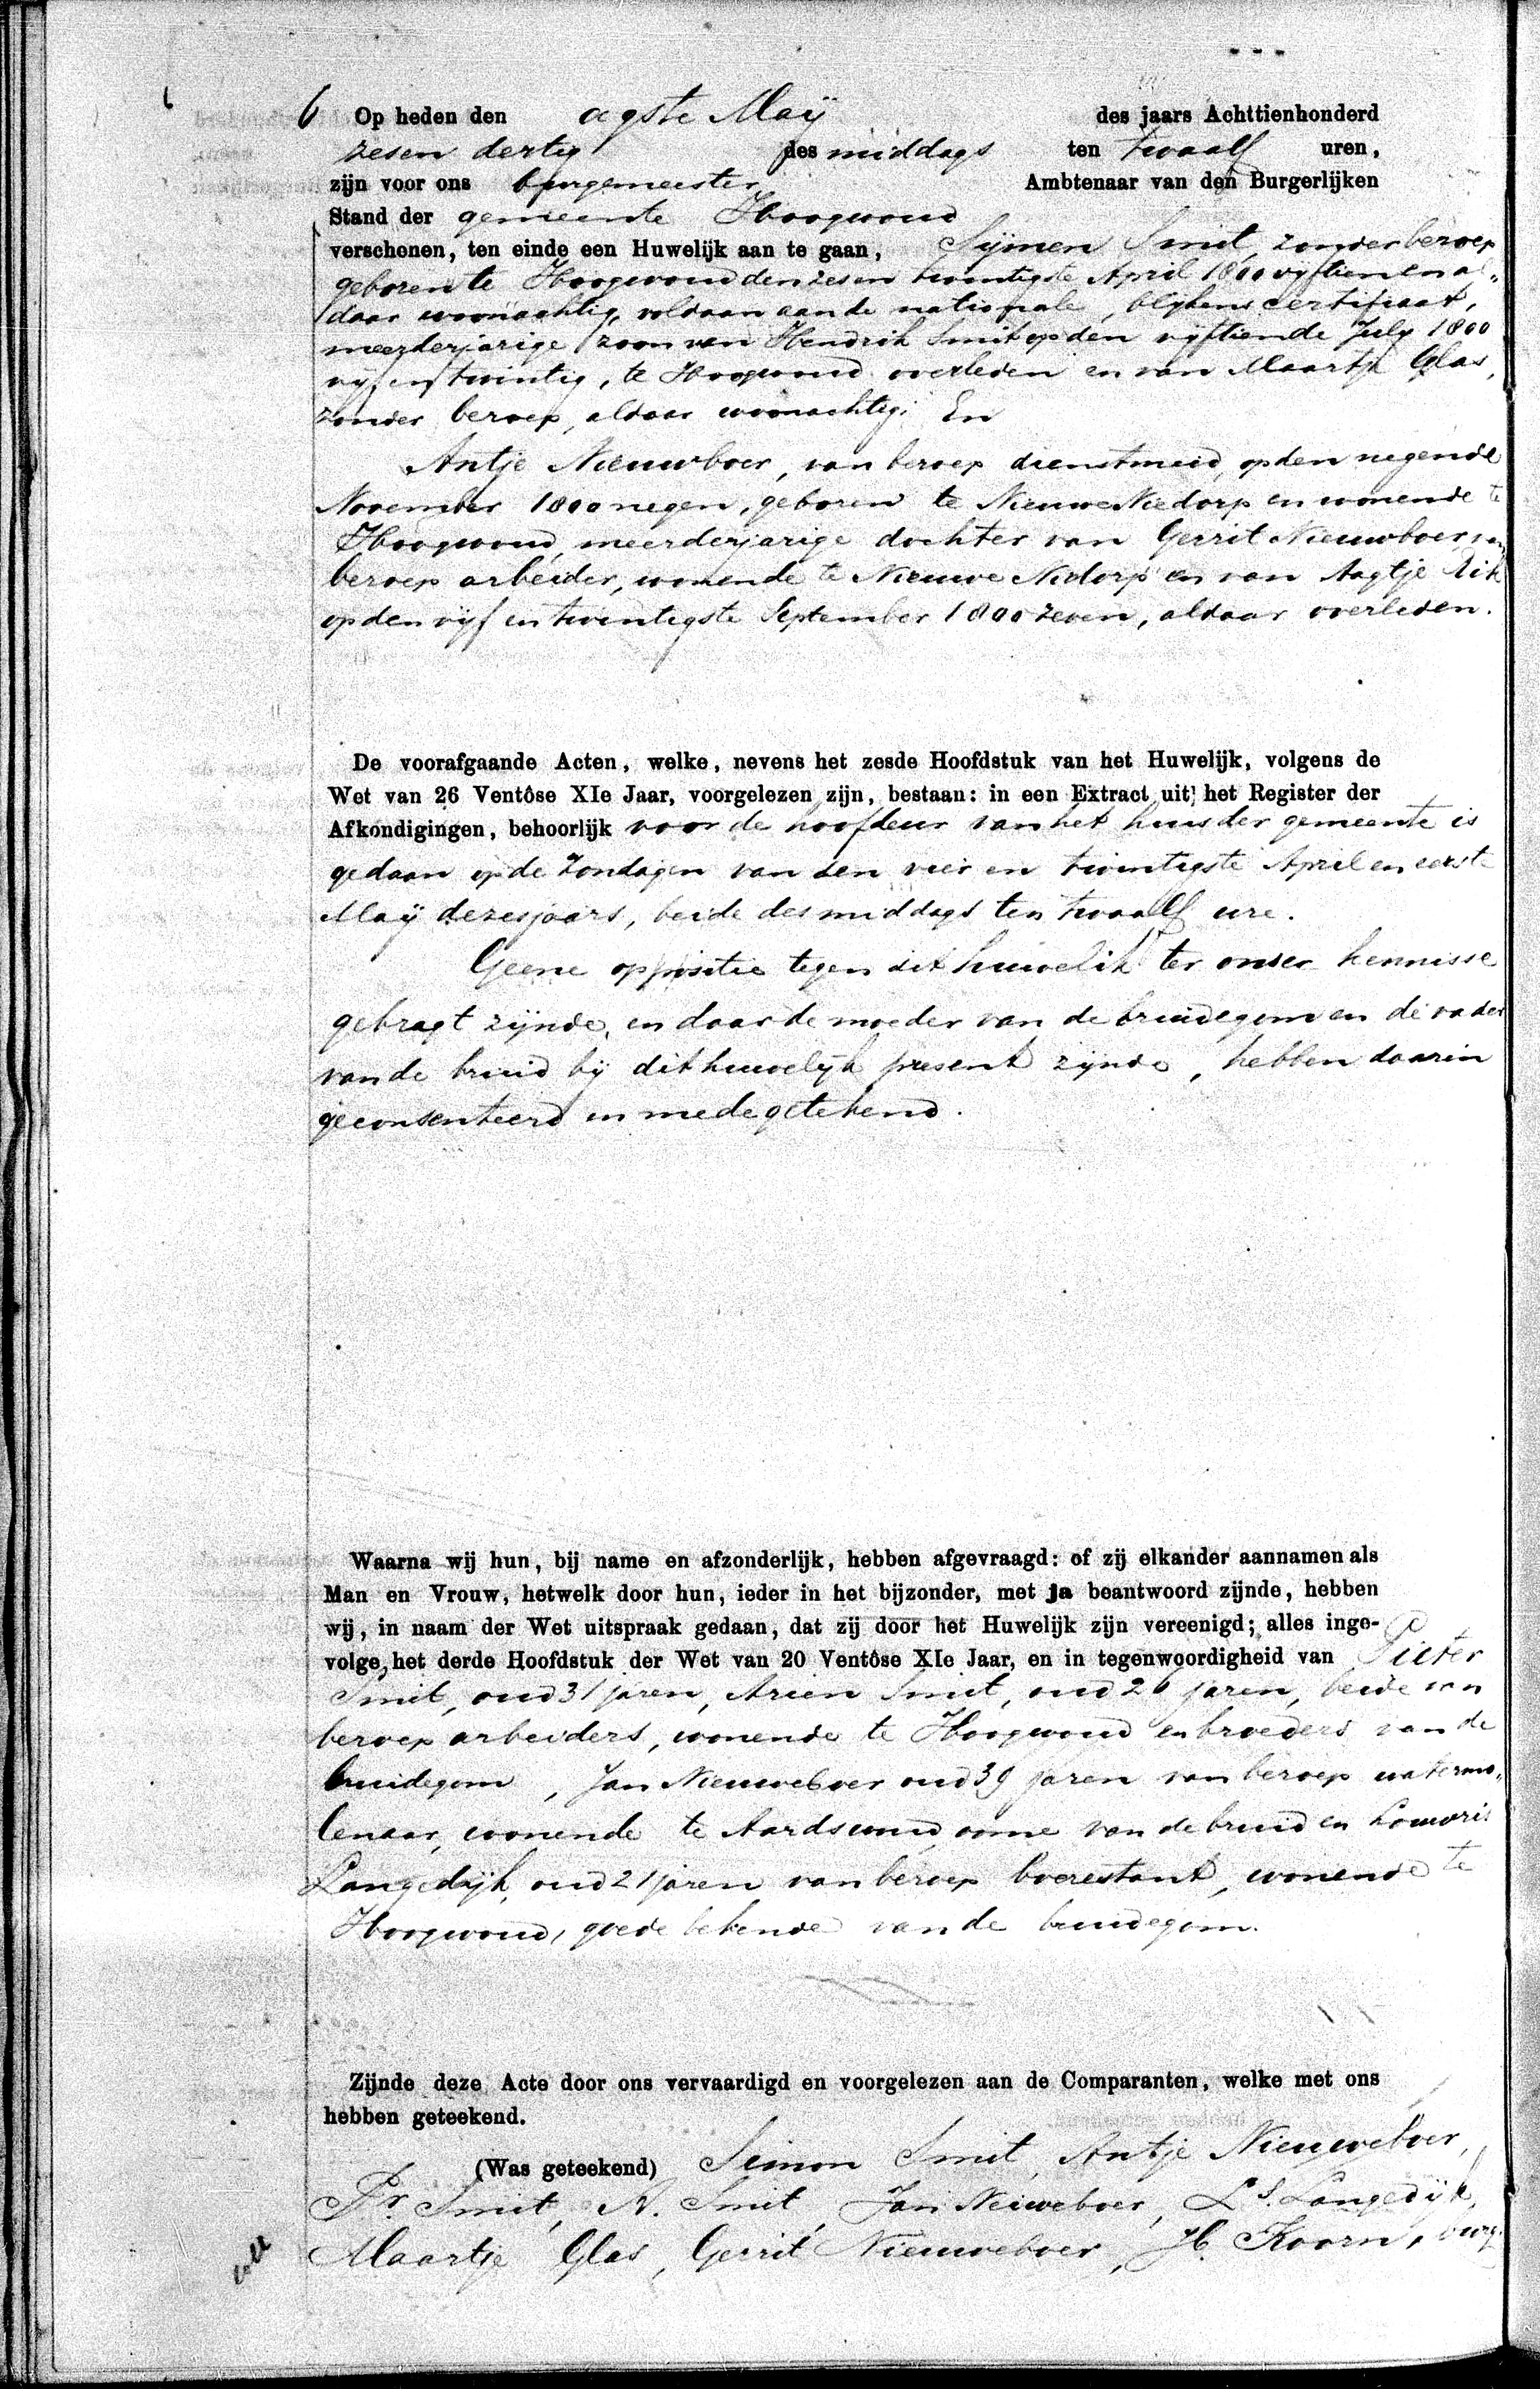 6 Op heden den agste Maÿ des jaars Achttienhonderd
zesen dertig des middags ten twaalf uren,
zijn voor ons burgemeester Ambtenaar van den Burgerlijken
Stand der gemeente Hoogwoud
verschenen, ten einde een Huwelijk aan te gaan, Sijmen Smit, zonder beroep
geboren te Hoogwoud den zesen twintigste April 1800 vijftien en al„
daar woonachtig, voldaan aan de nationale, blijkens certificaat,
meerderjarige zoon van Hendrik Smit op den vijftiende July 1800
vijf en twintig, te Hoogwoud overleden en van Maartje Glas,
zonder beroep, aldaar woonachtig. En
Antje Nieuwboer, van beroep dienstmeid, op den negende
November 1800 negen, geboren te Nieuwe Niedorp en wonende te
Hoogwoud, meerderjarige dochter van Gerrit Nieuwboer, van
beroep arbeider, wonende te Nieuwe Niedorp en van Aagtje
op den vijf en twintigste September 1800 zeven, aldaar overleden.
De voorafgaande Acten, welke, nevens het zesde Hoofdstuk van het Huwelijk, volgens de
Wet van 26 Ventôse XIe Jaar, voorgelezen zijn, bestaan: in een Extract uit het Register der
Afkondigingen, behoorlijk voor de hoofdeur van het huis der gemeente is
gedaan op de Zondagen van den vier en twintigste April en eerste
Maÿ dezesjaars, beide des middags ten twaalf ure.
Geene oppositie tegen dit huwelik ter onser kennisse
gebragt zijnde, en daar de moeder van de bruidegom en de vader
van de bruid bij dit huwelijk present zijnde, hebben daarin
geconsenteerd en mede getekend.
Waarna wij hun, bij name en afzonderlijk, hebben afgevraagd: of zij elkander aannamen als
Man en Vrouw, hetwelk door hun, ieder in het bijzonder, met ja beantwoord zijnde, hebben
wij, in naam der Wet uitspraak gedaan, dat zij door het Huwelijk zijn vereenigd; alles inge-
volge het derde Hoofdstuk der Wet van 20 Ventôse XIe Jaar, en in tegenwoordigheid van Pieter
Smit, oud 31 jaren, Arien Smit, oud 26 jaren, beide van
beroep arbeiders, wonende te Hoogwoud en broeders van de
bruidegom, Jan Nieuweboer oud 39 jaren van beroep watermo„
lenaar, wonende te Aardswoud, oome van de bruid en Louwris
Langedijk, oud 21 jaren van beroep boerestant, wonende te
Hoogwoud, goede bekende van de bruidegom.
Zijnde deze Acte door ons vervaardigd en voorgelezen aan de Comparanten, welke met ons
hebben geteekend.
(Was geteekend) Simon Smit, Antje Nieuweboer,
Pr. Smit, A. Smit, Jan Neiweboer, Ls. Langedijk,
Maartje Glas, Gerrit Nieuweboer, H. Koorn, burg.